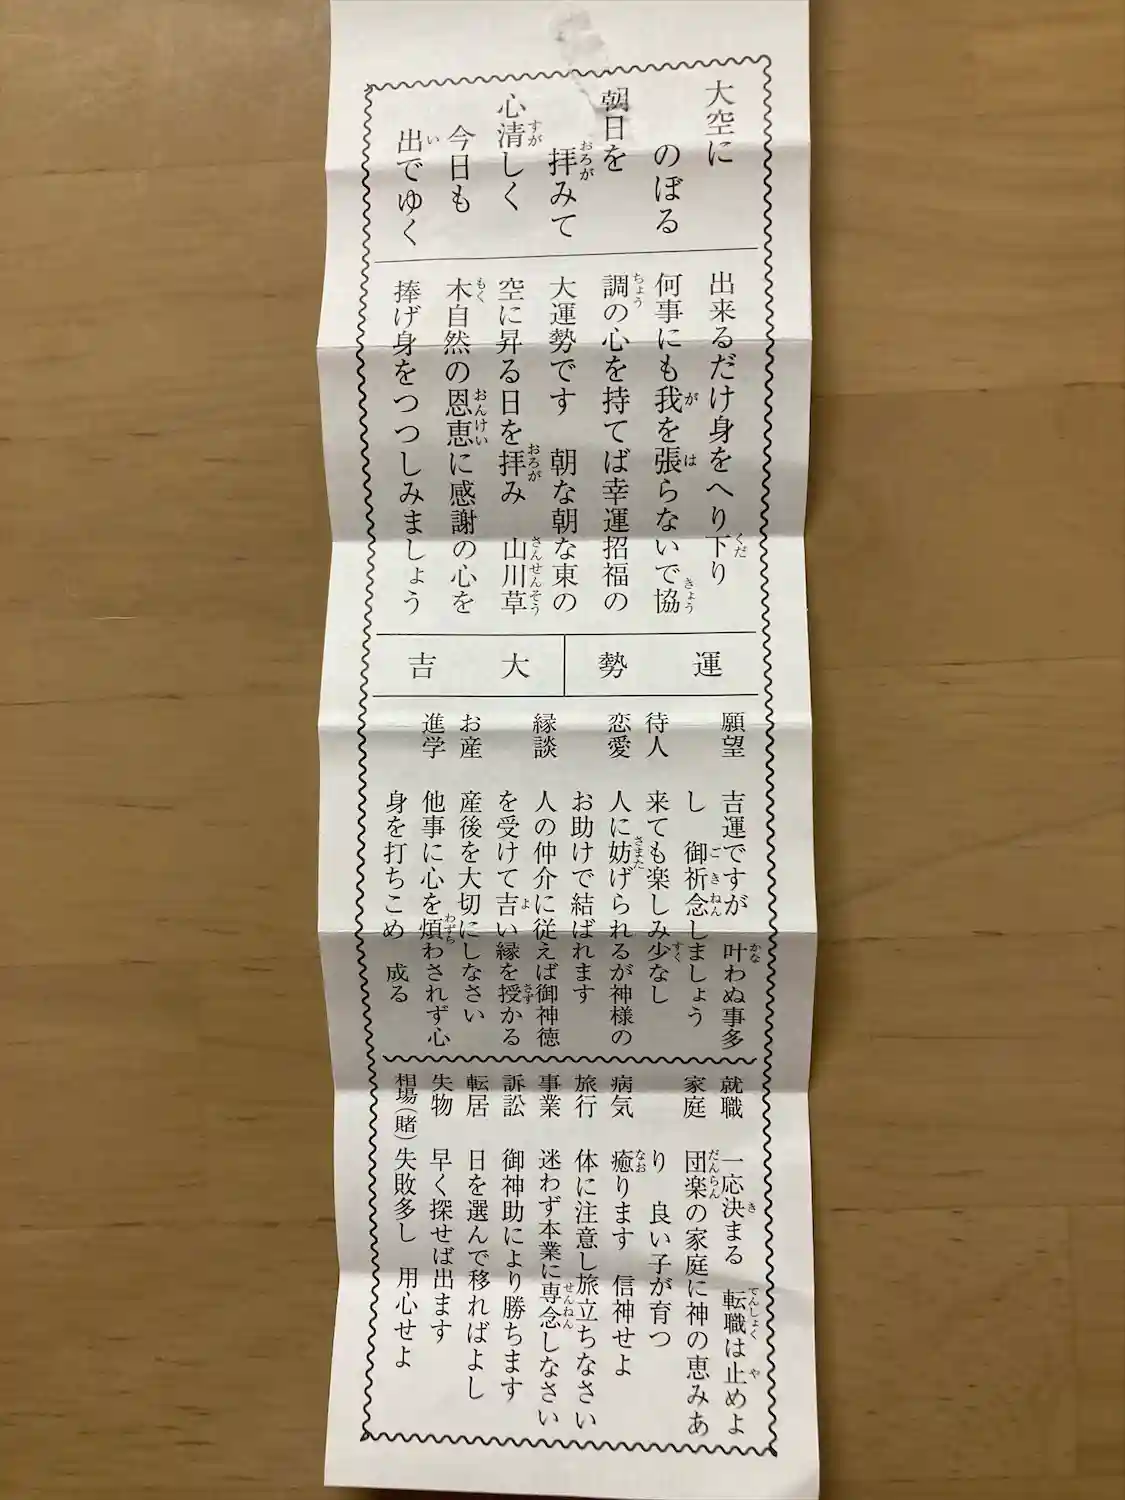 大空に
のぼる
朝日を
拝みて
心清しく
今日も
出でゆく
出来るだけ身をへり下り
何事にも我を張らないで協
調の心を持てば幸運招福の
大運勢です 朝な朝な東の
空に昇る日を拝み 山川草
木自然の恩恵に感謝の心を
捧げ身をつつしみましょう
運勢 大吉
願望 吉運ですが 叶わぬ事多
し 御祈念しましょう
待人 来ても楽しみ少なし
恋愛 人に妨げられるが神様の
お助けで結ばれます
縁談 人の仲介に従えば御神徳
を受けて吉い縁を授かる
お産 産後を大切にしなさい
進学 他事に心を煩わされず心
身を打ちこめ 成る
就職 一応決まる 転職は止めよ
家庭 団楽の家庭に神の恵みあ
り 良い子が育つ
病気 癒ります 信神せよ
旅行 体に注意し旅立ちなさい
事業 迷わず本業に専念しなさい
訴訟 御神助により勝ちます
転居 日を選んで移ればよし
失物 早く探せば出ます
相場(賭) 失敗多し 用心せよ